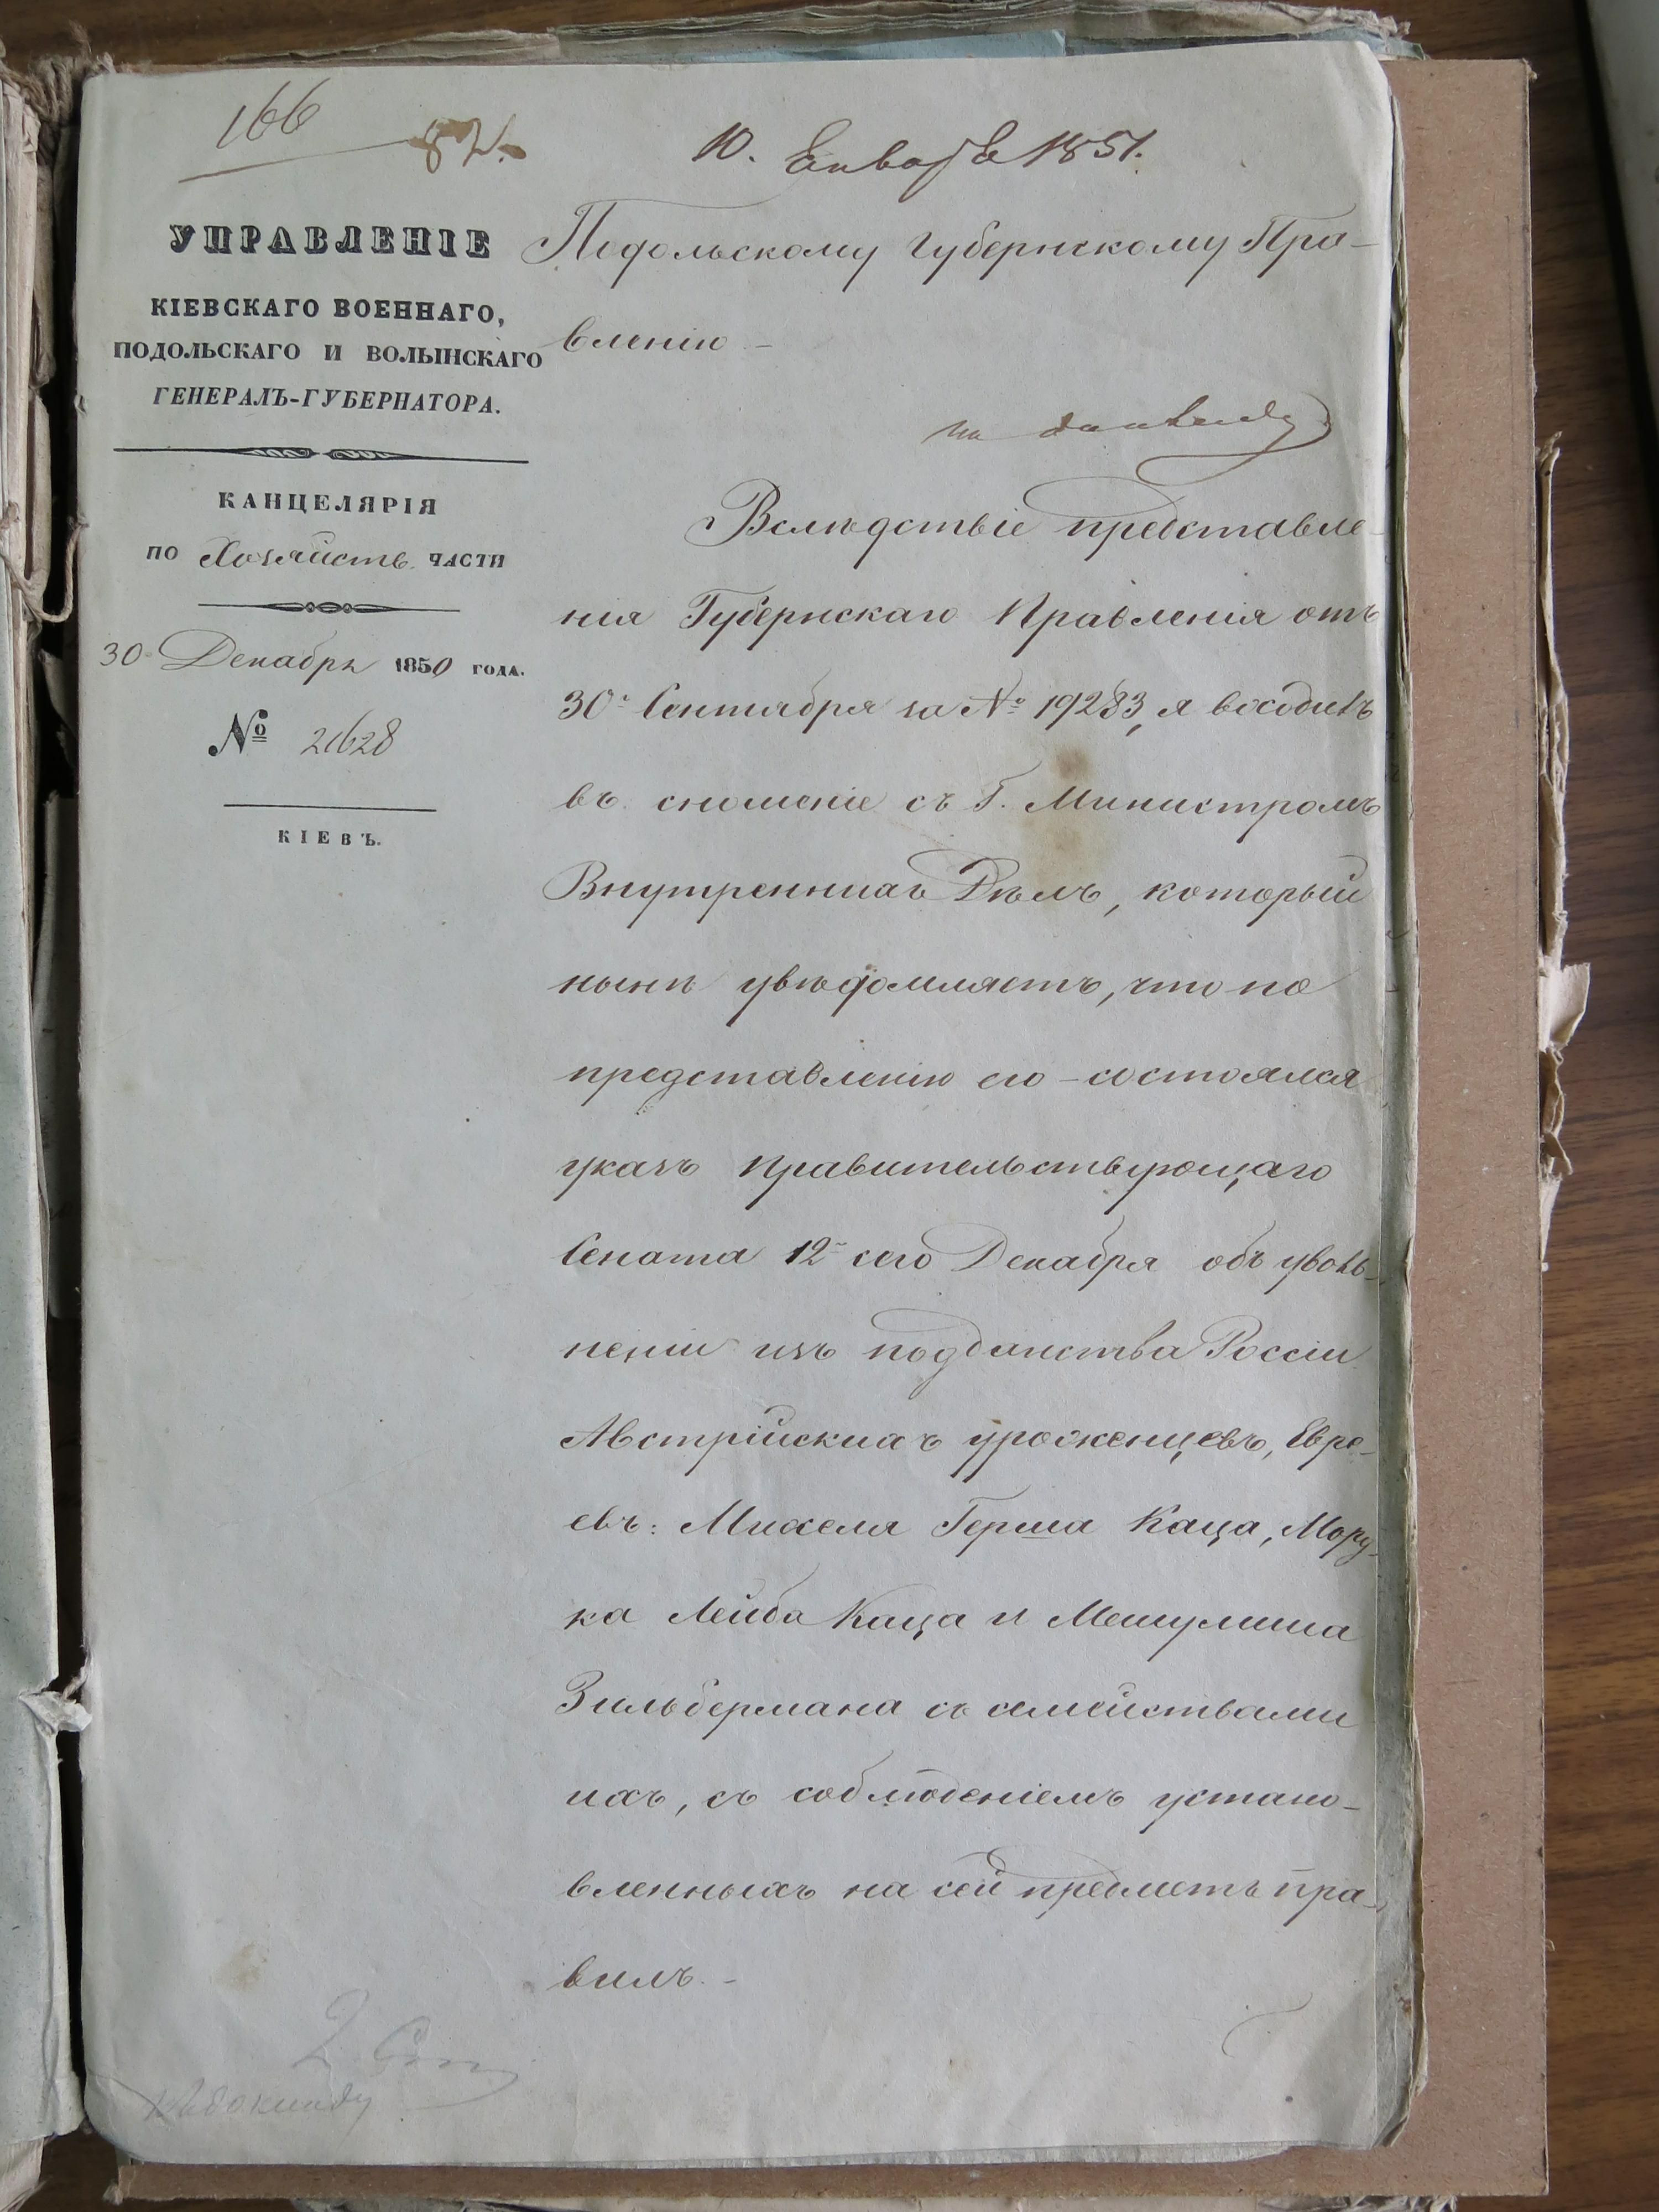 166
82.
10. Января 1851.
УПРАВЛЕНІЕ
КІЕВСКАГО ВОЕННАГО,
ПОДОЛЬСКАГО И ВОЛЫНСКАГО
ГЕНЕРАЛЪ-ГУБЕРНАТОРА.
КАНЦЕЛЯРІЯ
ПО Хозяйств. ЧАСТИ
30 Декабря 1850 ГОДА.
№ 21628
КІЕВЪ.
Подольскому Губернскому Пра-
вленію.-
къ докладу
Вслѣдствіе представле-
нія Губернскаго Правленія отъ
30 Сентября за № 19283, я входилъ
въ сношеніе съ Г. Министромъ
Внутреннихъ Дѣлъ, который
нынѣ увѣдомляетъ, что по
представленію его - состоялся
указъ Правительствующаго
Сената 12 сего Декабря объ уволь-
неніи изъ подданства Россіи
Австрійскихъ уроженцевъ, Евре-
евъ: Михеля Герша Каца, Мору-
ка Лейба Каца и Мешулима
Зильбермана съ семействами
ихъ, съ соблюденіемъ устано-
вленныхъ на сей предметъ пра-
вилъ.-
2
къ докладу